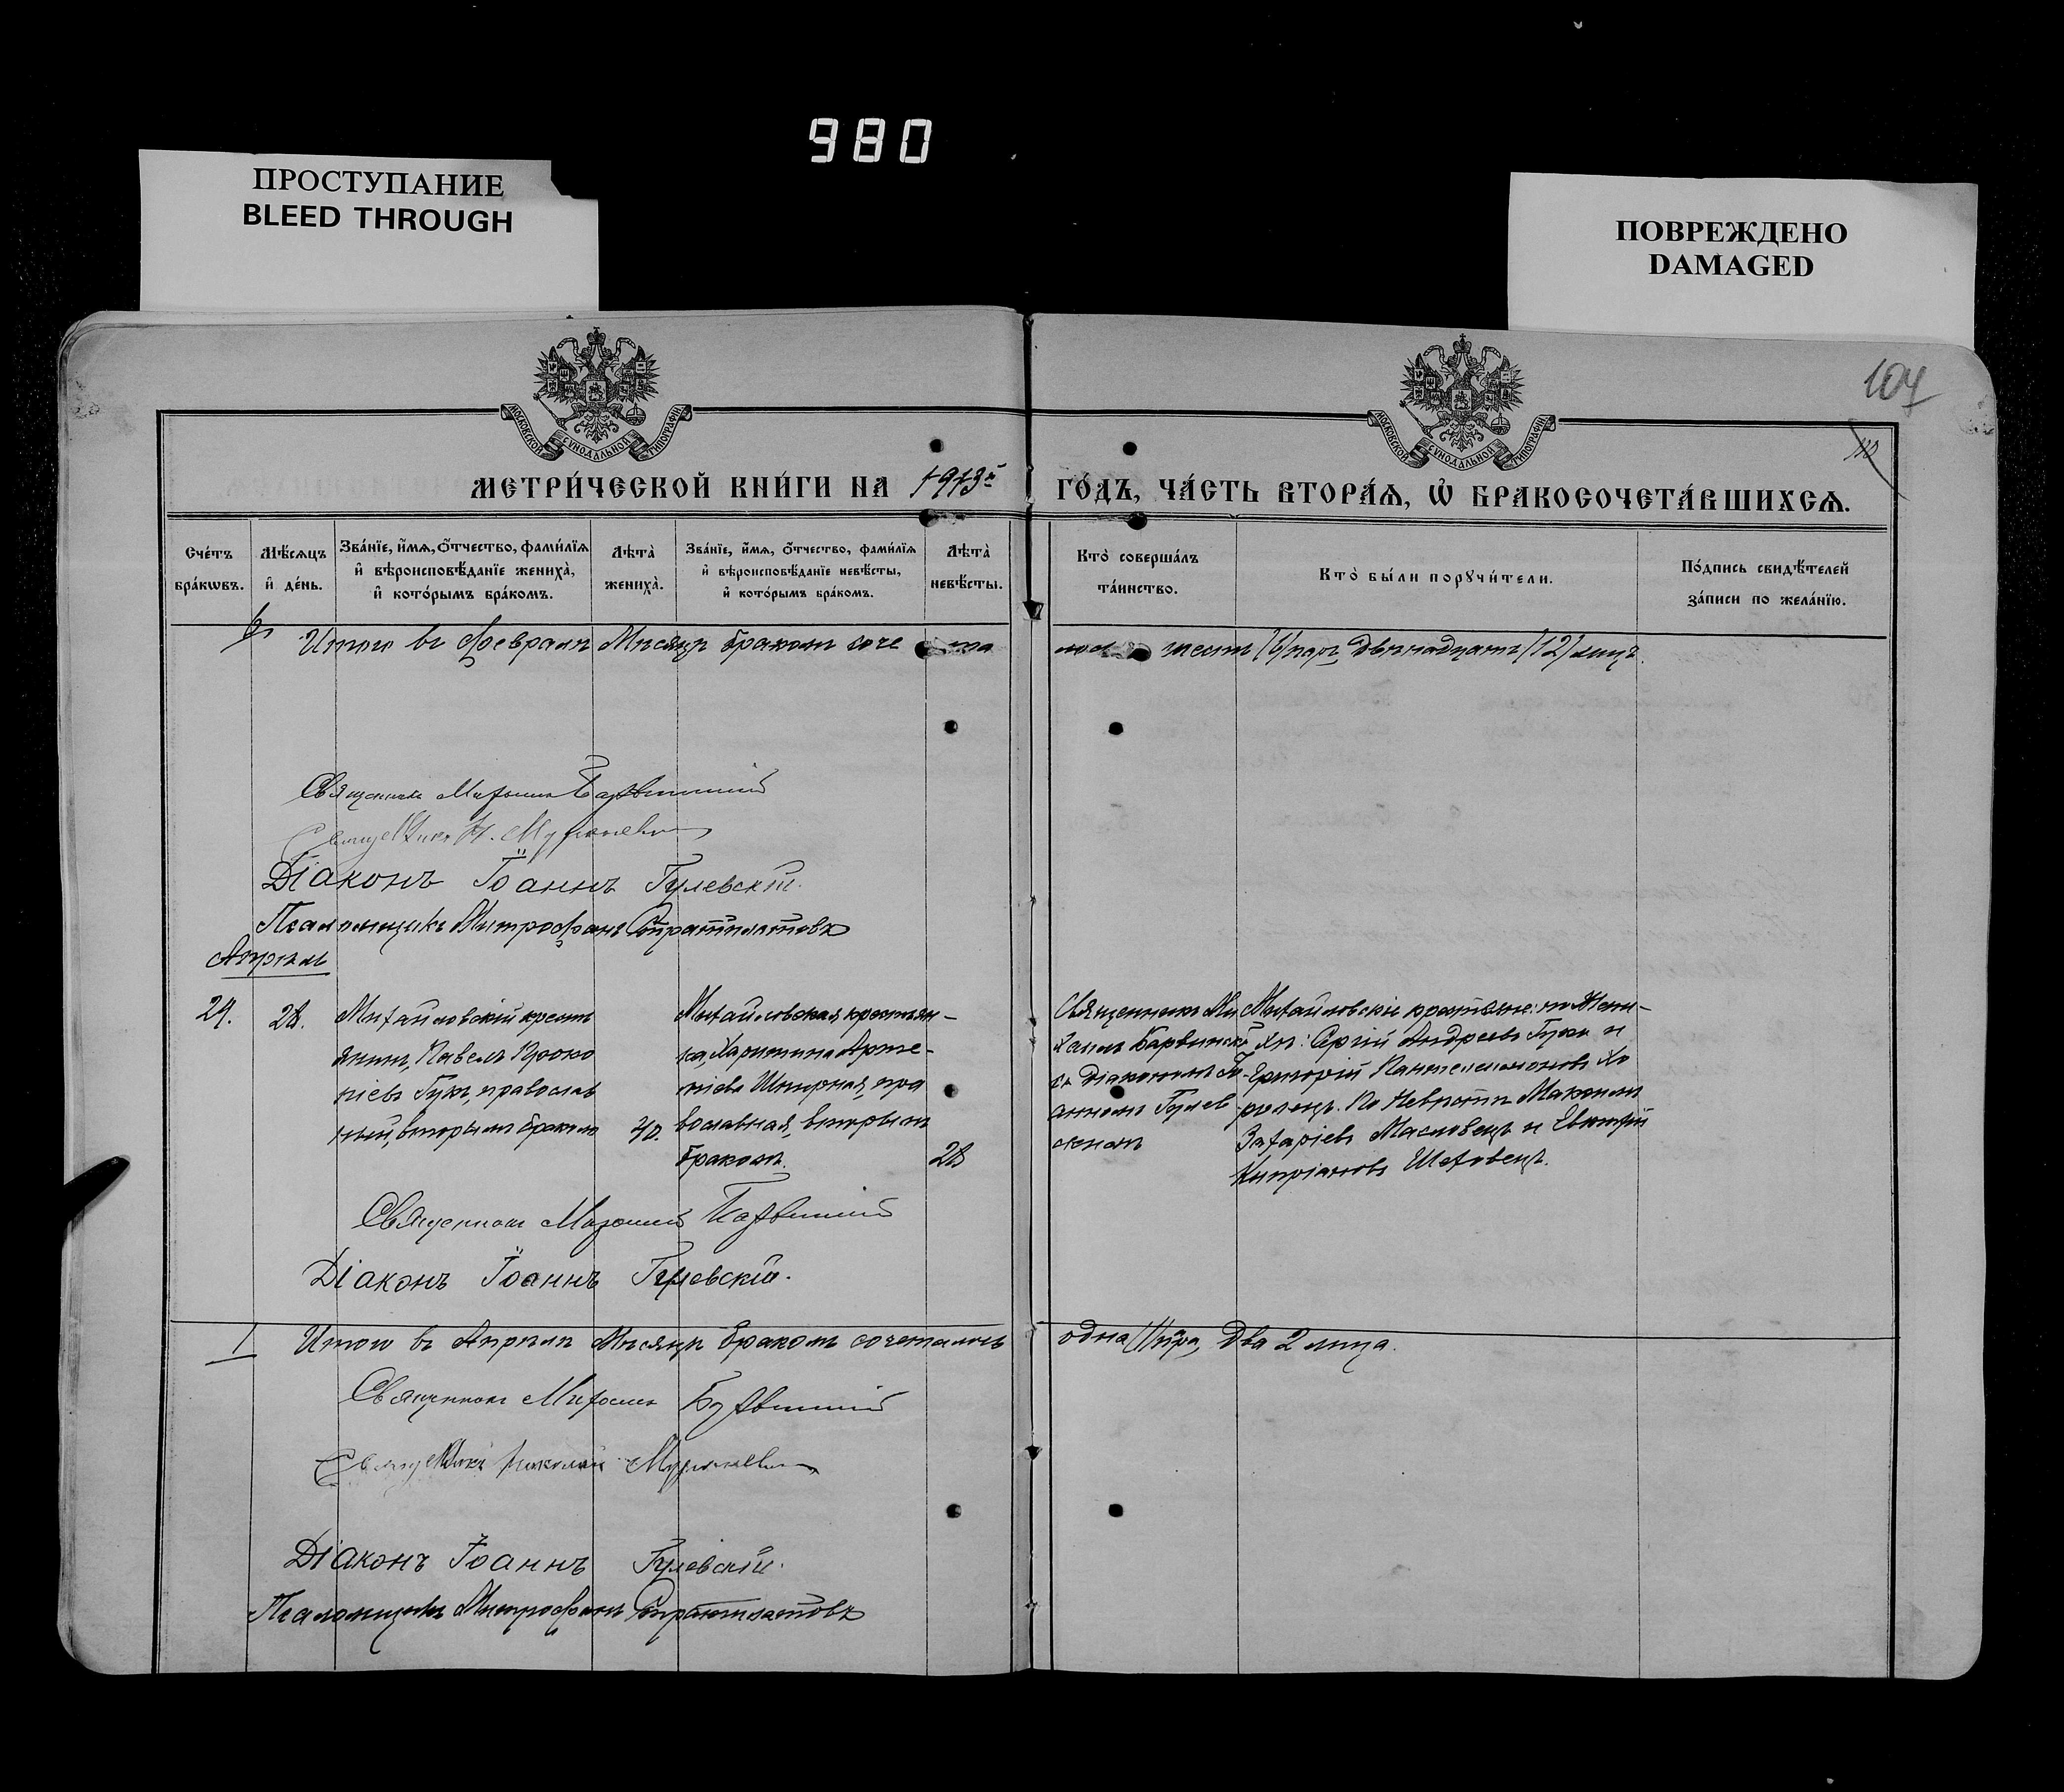 980
ПРОСТУПАНИЕ
BLEED THROUGH
ПОВРЕЖДЕНО
DAMAGED
104
МОСКОВСКОЙ СѴНОДАЛЬНОЙ ТИПОГРАФІИ
МОСКОВСКОЙ СѴНОДАЛЬНОЙ ТИПОГРАФІИ
МЕТРИ́ЧЕСКОЙ КНИ́ГИ НА 1913 г. ГО́ДЪ, ЧА́СТЬ ВТОРА́Ѧ, Ѽ БРАКОСОЧЕТА́ВШИХСѦ.
Сче́тъ
бра́кѡвъ.
Мѣ́сѧцъ
и҆ де́нь.
Зва́нїе, и҆́мѧ, ѻ҆́тчество, фами́лїѧ
и҆ вѣроисповѣ́данїе жениха̀,
и҆ кото́рымъ бра́комъ.
Лѣ́та
жениха̀.
Зва́нїе, и҆́мѧ, ѻ҆́тчество, фами́лїѧ
и҆ вѣроисповѣ́данїе невѣ́сты,
и҆ кото́рымъ бра́комъ.
Лѣ́та
невѣ́сты.
Кто̀ соверша́лъ
та́инство.
Кто̀ бы́ли порꙋчи́тели.
По́дпись свидѣ́телей
за́писи по жела́нїю.
6 Итого въ Февралѣ Мѣсяцѣ бракомъ соче та лось шесть (6) паръ, двѣнадцать (12) лицъ.
Священникъ Михаилъ Барвинскій
Священникъ Н.
Діаконъ Іоаннъ Гулевскій.
Псаломщикъ Митрофанъ Стратилатовъ
Апрѣль
24.
28.
Михайловскій кресть
янинъ, Павелъ Проко
піевъ Гужъ, православ
ный, вторымъ бракомъ
40.
Михайловская крестьян-
ка, Харитина Арте-
міева православная, вторымъ
бракомъ.
28
Священникъ Ми
хаилъ Барвинскій
съ Діакономъ Іо-
анномъ Гулев
скимъ
Михайловскіе крестьяне: по Жени-
хѣ: Сергій Андреевъ Гужъ и
Григорій Пантелеимоновъ Хо
ролецъ. По Невѣстѣ Максимъ
Захаріевъ Масловецъ и Евтихій
Кипріановъ Шеховецъ.
Священникъ Михаилъ Барвинскій
Діаконъ Іоаннъ Гулевскій.
1 Итого въ Апрѣлѣ Мѣсяцѣ бракомъ сочеталось одна (1) пара, два 2 лица.
Священникъ Михаилъ Барвинскій
Священникъ Николай
Діаконъ Іоаннъ Гулевскій.
Псаломщикъ Митрофанъ Стратилатовъ